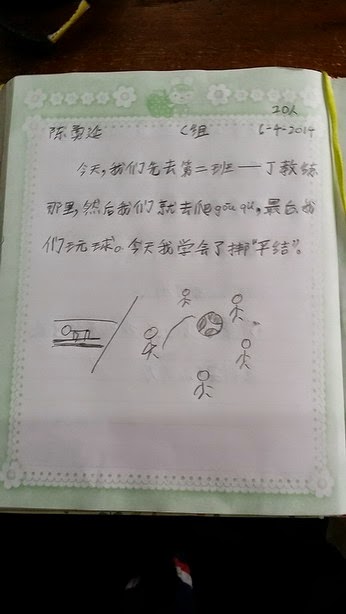 20人
陈勇延 C组 6-4-2014
今天,我们先去第二班——丁教练
那里,然后我们就去爬gōu qú,最后我
们玩球。今天我学会了绑“平结”。